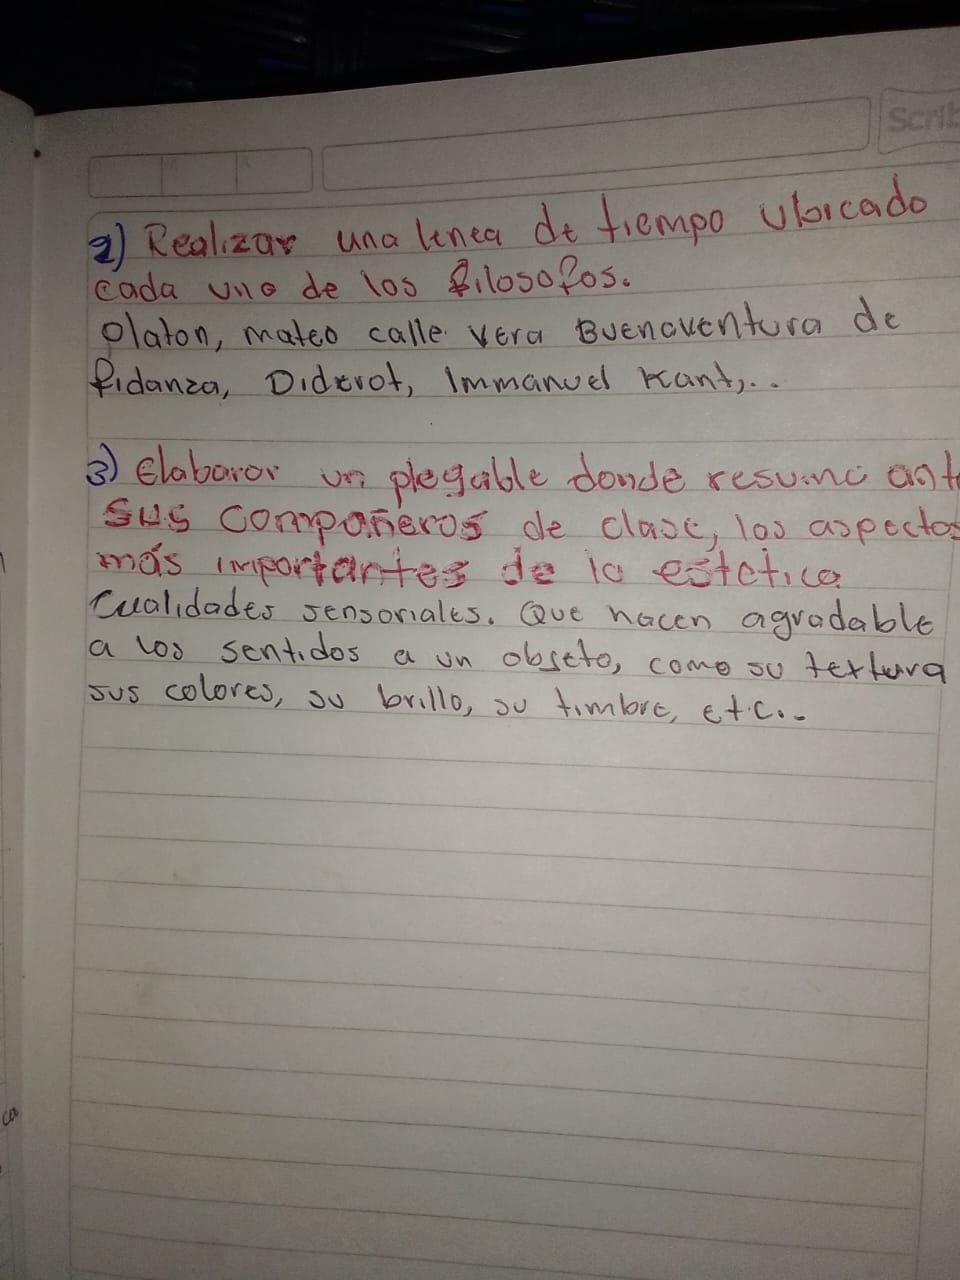 Scrib
2) Realizar una linea de tiempo ubicado
cada uno de los filosofos.
Platon, mateo calle vera Buenaventura de
fidanza, Diderot, Immanuel Kant,...
3) Elaborar un plegable donde resuma ante
sus compañeros de clase, los aspectos
más importantes de la estética
Cualidades sensoriales. Que hacen agradable
a los sentidos a un obseto, como su textura
sus colores, su brillo, su timbre, etc..
ca